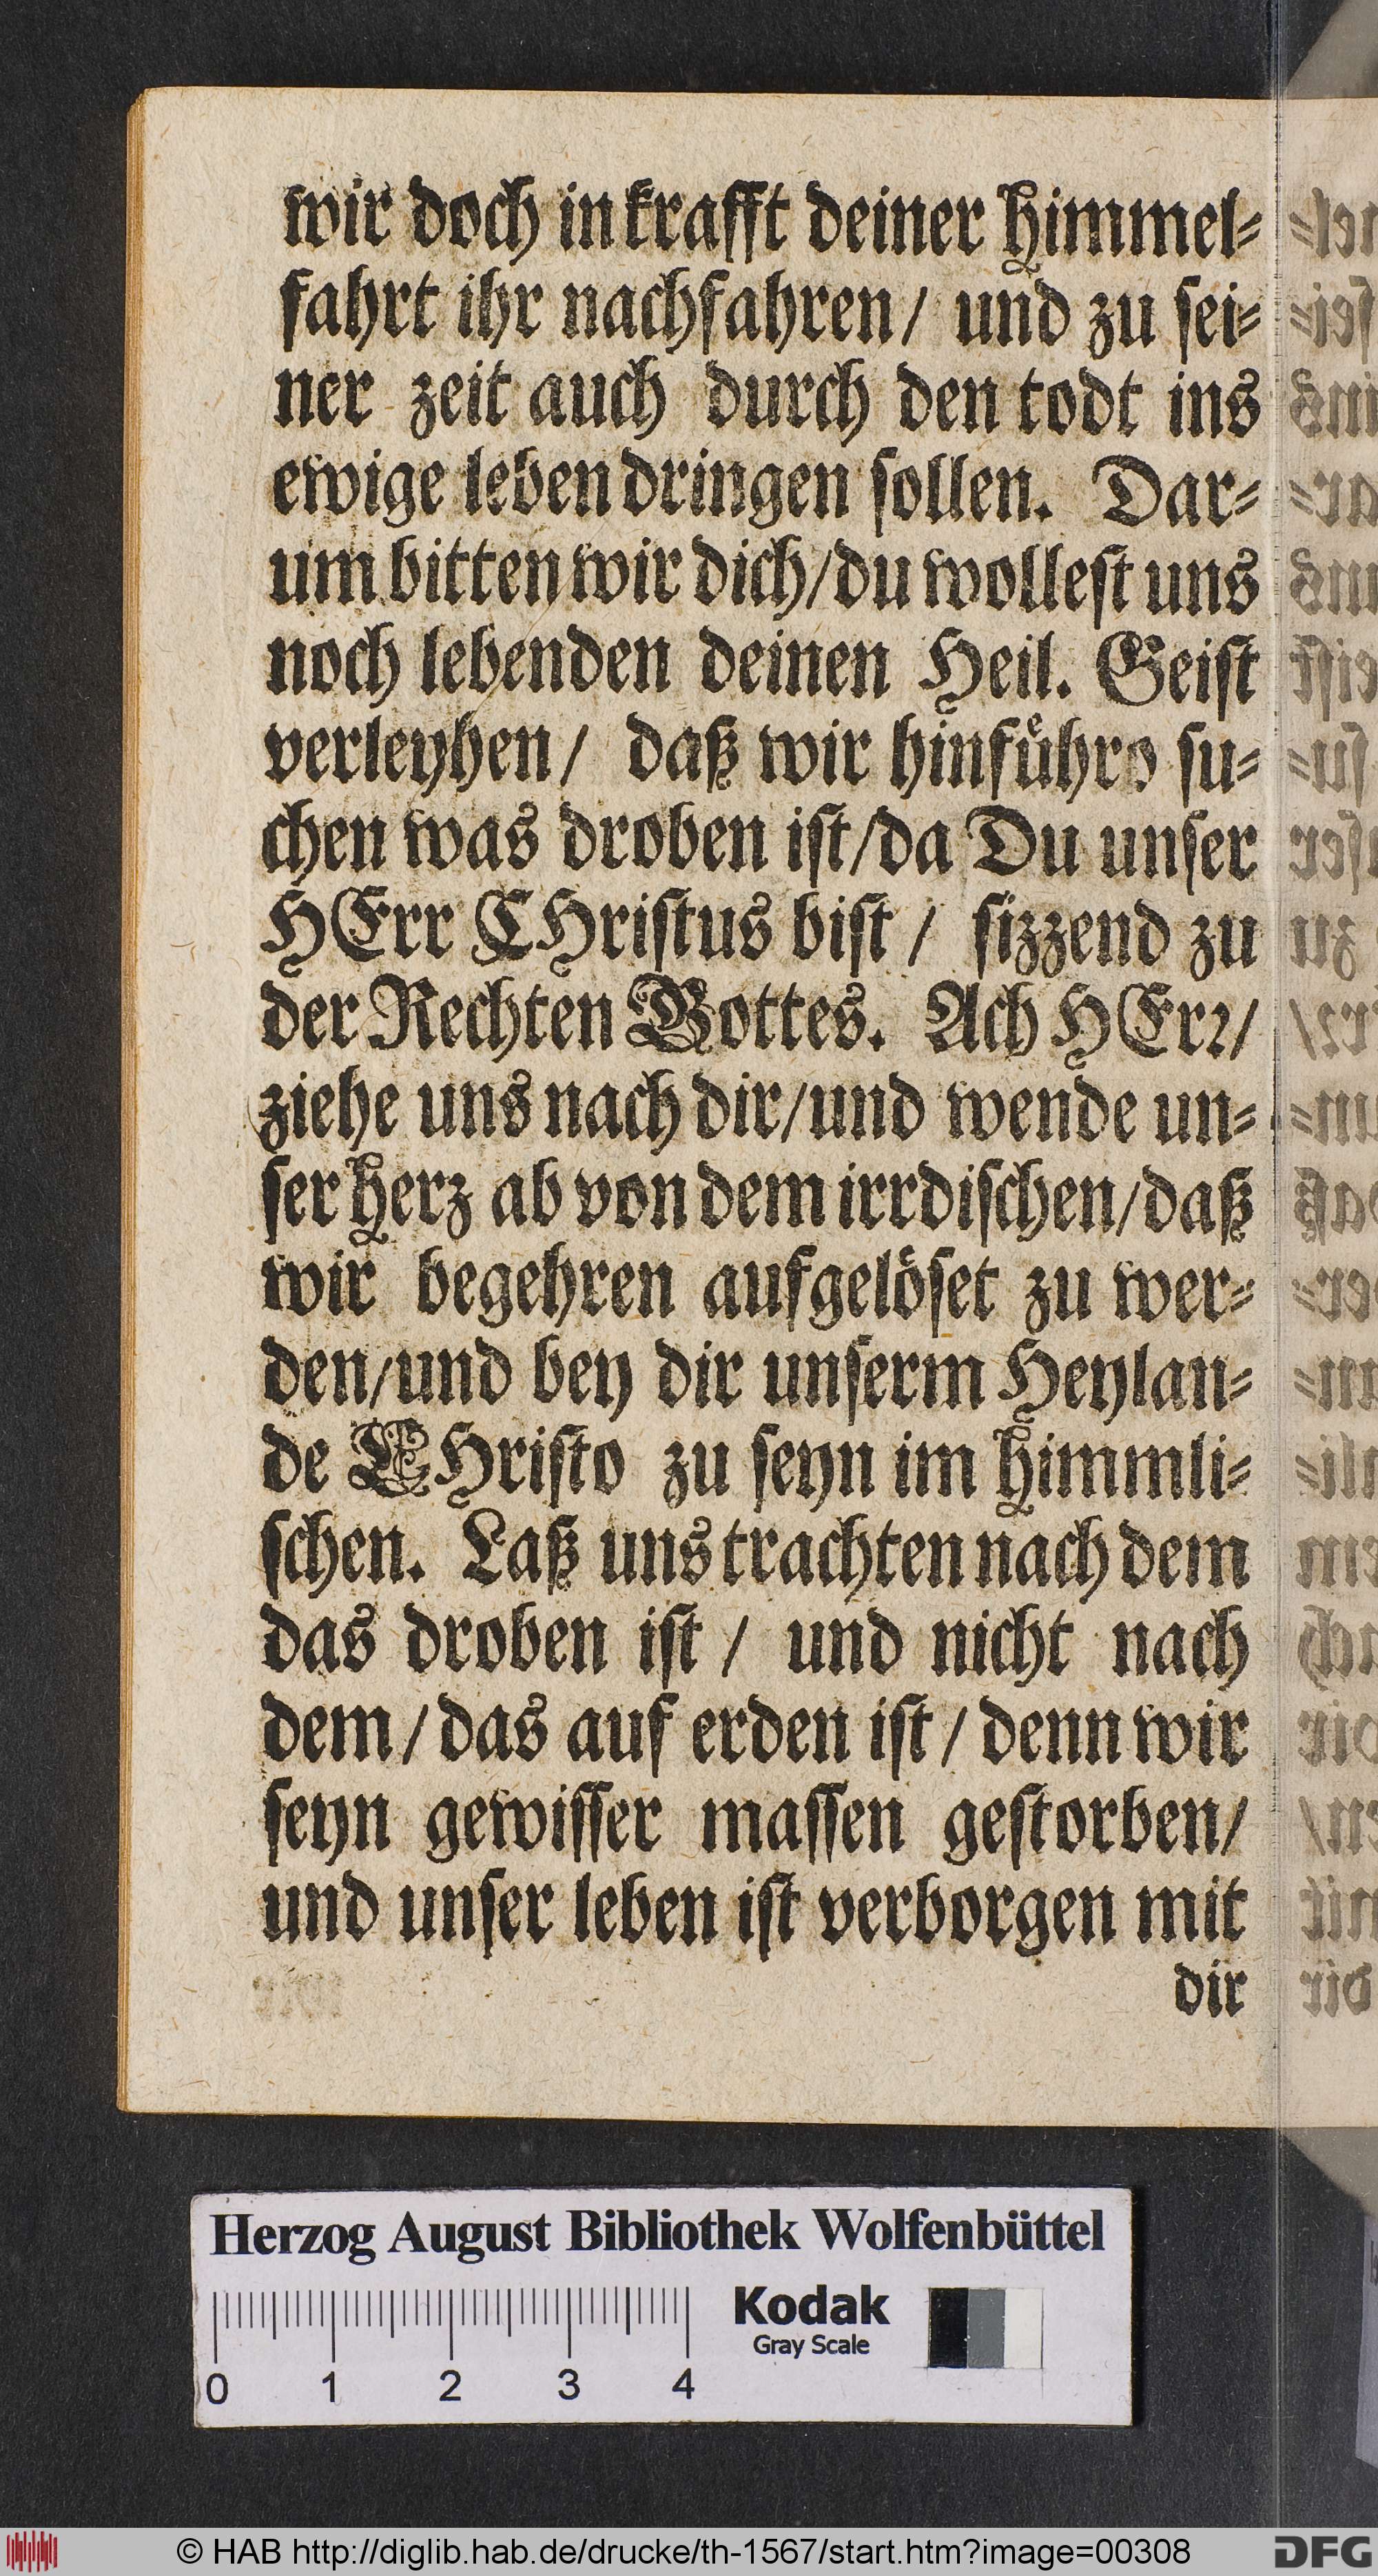 wir doch in krafft deiner himmel⸗
fahrt ihr nachfahren/ und zu ſei⸗
ner zeit auch durch den todt ins
ewige leben dringen ſollen. Dar⸗
um bitten wir dich/du wolleſt uns
noch lebenden deinen Heil. Geiſt
verleyhen/ daß wir hinfuͤhro ſu⸗
chen was droben iſt/da Du unſer
HErr CHriſtus biſt / ſizzend zu
der Rechten Gottes. Ach HErꝛ/
ziehe uns nach dir/und wende un⸗
ſer herz ab von dem irrdiſchen/daß
wir begehren aufgeloͤſet zu wer⸗
den/und bey dir unſerm Heylan⸗
de CHriſto zu ſeyn im himmli⸗
ſchen. Laß uns trachten nach dem
das droben iſt / und nicht nach
dem/das auf erden iſt/denn wir
ſeyn gewiſſer maſſen geſtorben/
und unſer leben iſt verborgen mit
dir
Herzog August Bibliothek Wolfenbüttel
Kodak
Gray Scale
0 1 2 3 4
© HAB http://diglib.hab.de/drucke/th-1567/start.htm?image=00308
DFG